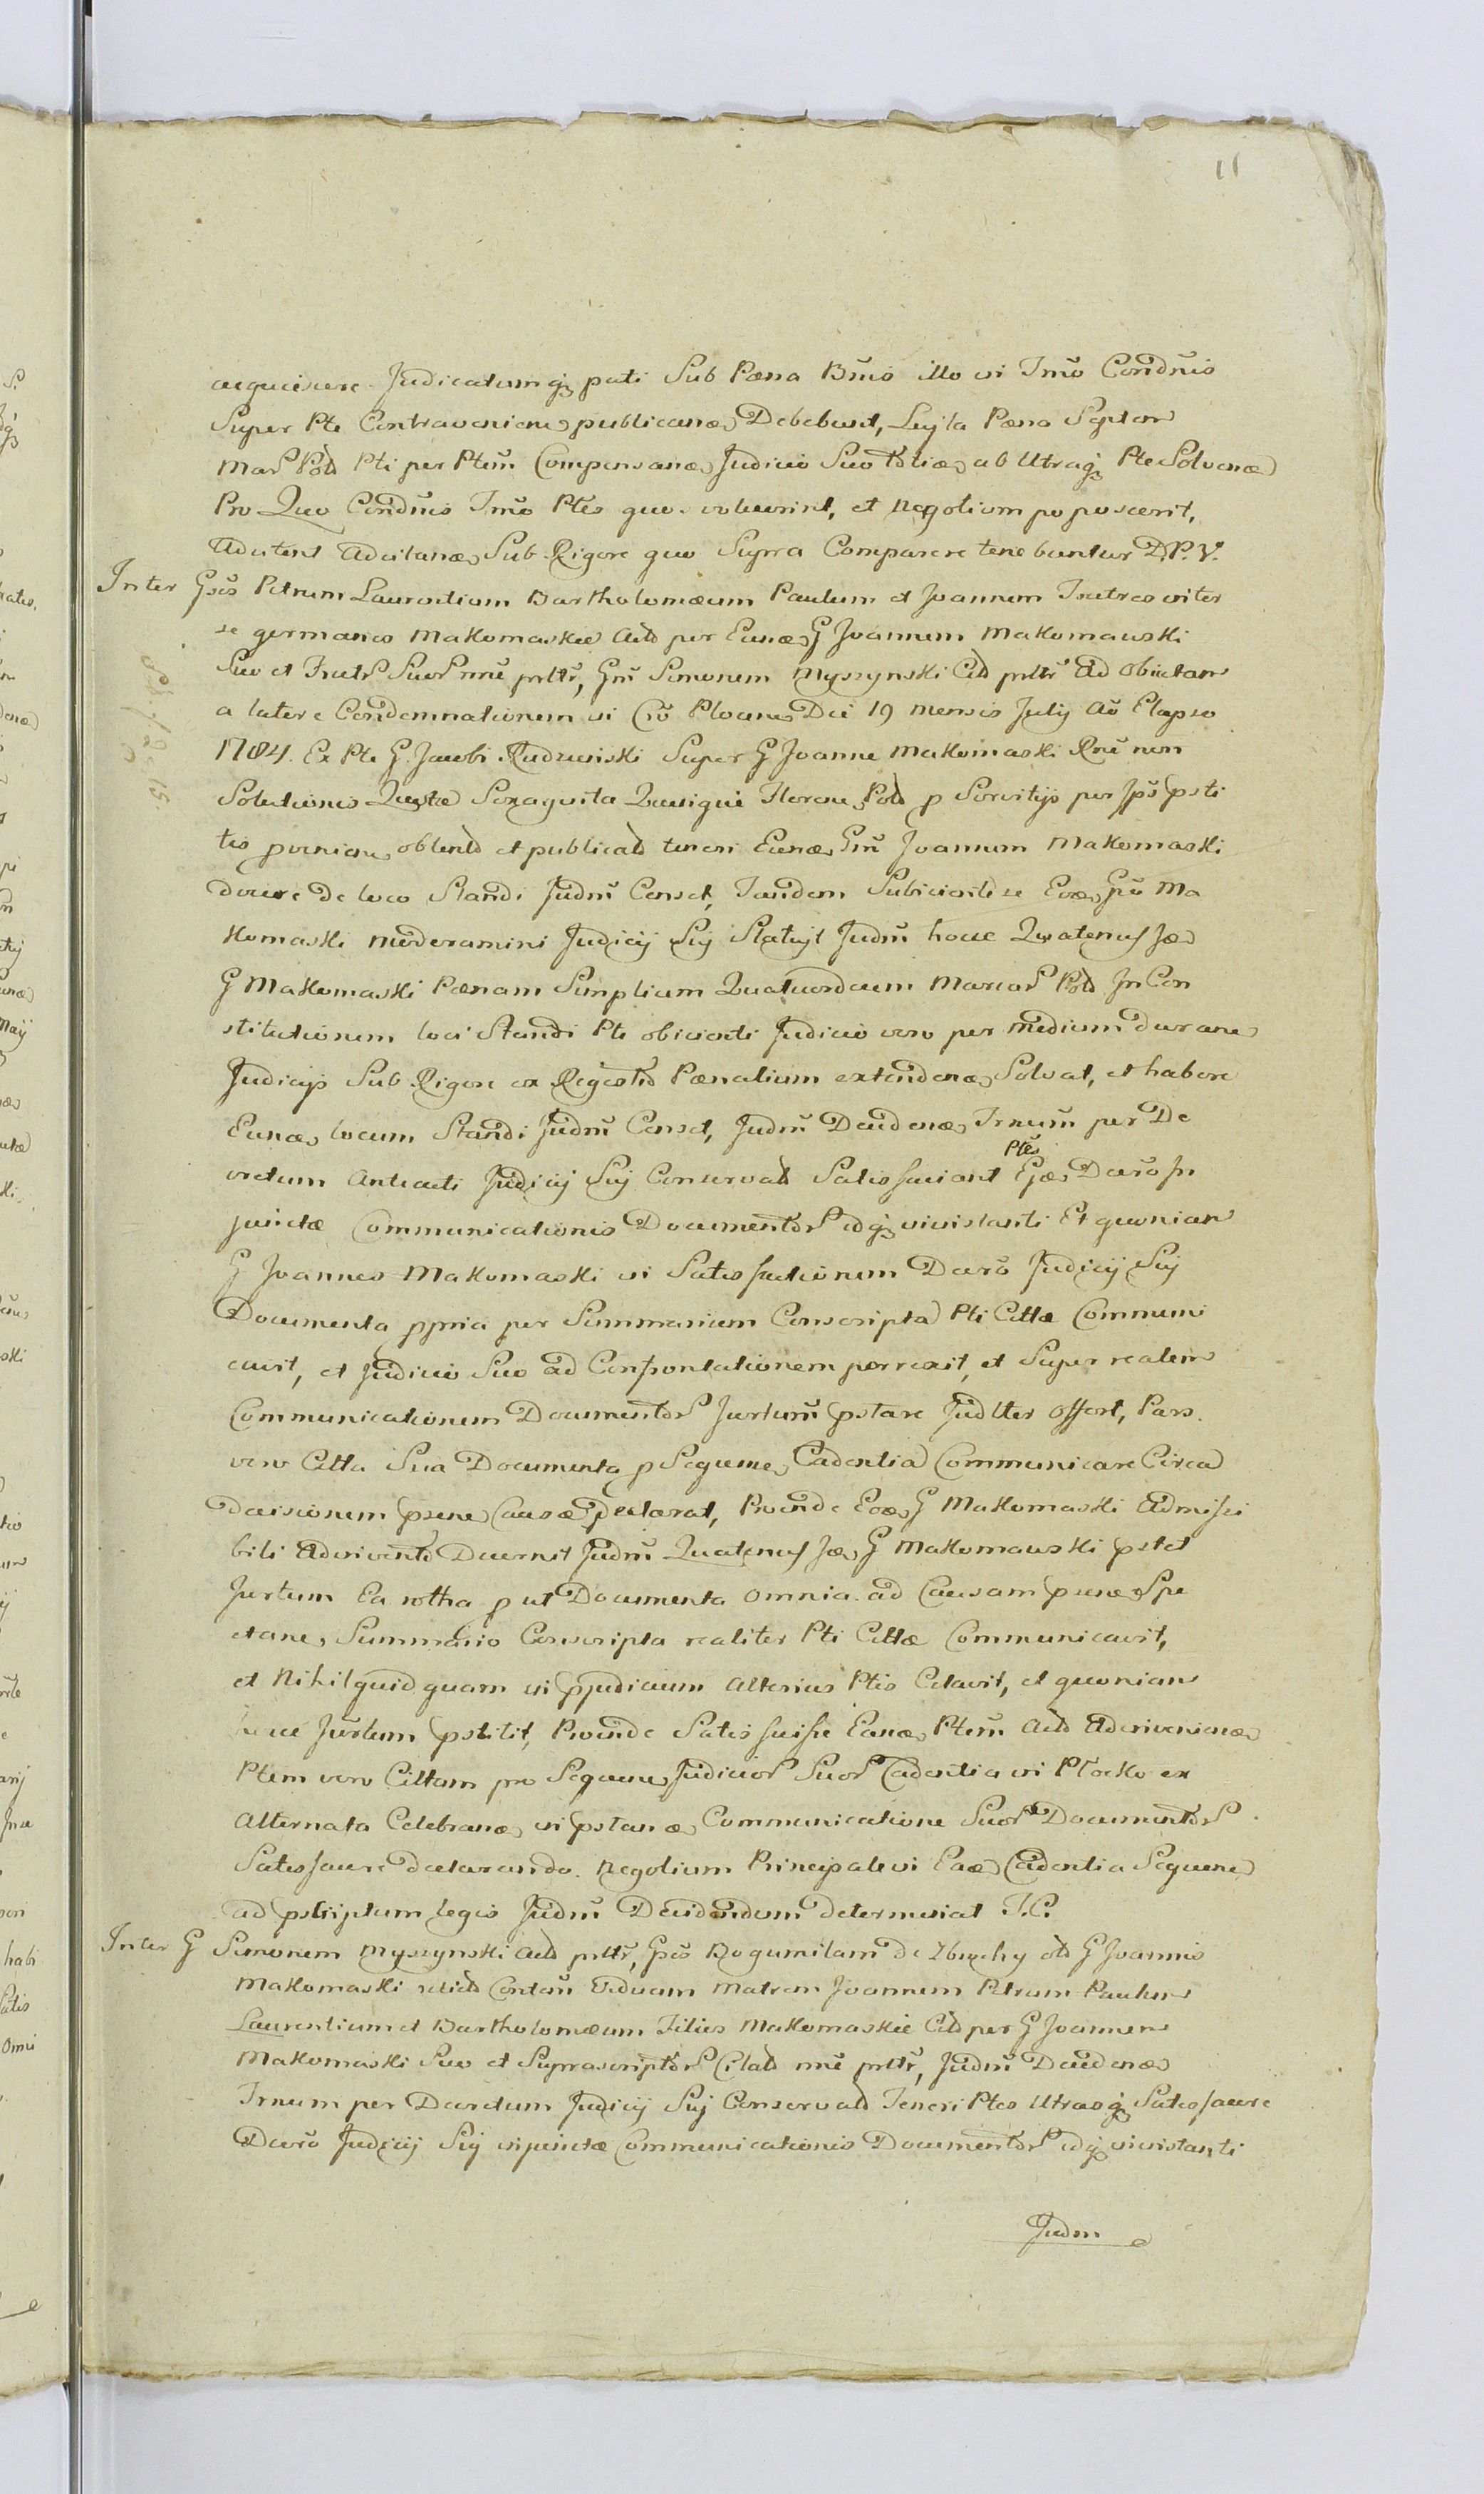 11
acquiescere Judicatumq3 pati Sub Pæna Bnis illo vi Tmo Condnis
Super Pte Contravenien publicanæ Debebunt, Lujta Pæna Septem
Mar Pol Pti per Ptem Compensanæ Judicio Suo totiæ ab Utraq3 Pte Solvenæ
Pro Quo Condnis Tmo Ptes quo voluerint, et negotium poposcerit,
Adcitent Adcitanæ Sub Rigore quo Supra Comparere tenebuntur D.P.V.
Inter Gsos Petrum Laurentium Bartholomæum Paulum et Joannem Fratres inter
se germanos Makomaskie Actd per Eunæ G Joannem Makomawski
Suo et Fratr Suor nne prltr, Gm Simonem Myszynski Citd prltr Ad Obiectam
a latere Condemnationem in Cro Plocen Die 19 mensis Julij Ao Elapso
1784. Ex Pte G. Jacobi Rudzinski Super G Joanne Makomaski Rne non
Solutionis Questæ Sexaginta Quinque Floren Pold p Servitijs per Ips psti
tis provenien obtentd et publicatd teneri Eunæ Gm Joannem Makomaski
docere De loco Standi Judm Censet, Tandem Subiicienti se Eoæ Gso Ma
komaski moderamini Judicij Sui Statuit Judm hocce Quatenus Jæ
G Makomaski Pænam Simplicem Quatuordecim Marcar Pold In Con
stitutionem loci Standi Pti obicienti Judicio vero per medium duran
Judicijs Sub Rigore ex Regestro Pænalium extendenæ Solvat, et habere
Eunæ locum Standi Judm Censet, Judm Decidenæ Trnum per De
cretum Anteacti Judicij Sui Conservatd Satisfaciant Ptes Ejæ Decro In
junctæ Communicationis Documentor idq3 vi instanti Et quoniam
G Joannes Makomaski in Satisfactionem Decro Judicij Sui
Documenta ppria per Summarium Conscripta Pti Cittæ Communi
cavit, et Judicio Suo ad Confrontationem porrexit, et Super realem
Communicationem Documentor Jurtum pstare Judlter offert, Pars
vero Citta Sua Documenta p Sequene Cadentia Communicare Circa
decisionem psene Causæ declarat, Proinde Eoæ G Makomaski Admissi
bili Adinvento Decernit Judm Quatenus Jæ G Makomawski pstet
Jurtum Ea rottha p ut Documenta omnia ad Causam psene Spe
ctane Summario Conscripta realiter Pti Cittæ Communicavit,
et Nihil quid quam in pjudicium Alterius Ptis Celavit, et quoniam
hocce Jurtum pstitit, Proinde Satis fecisse Eanæ Ptem Actd Adinvenienæ
Ptem vero Cittam pro Sequene Judicior Suor Cadentia in Płocko ex
Alternata Celebranæ in pstanæ Communicatione Suor Documentor
Satisfacere declarando. Negotium Principale in Eaæ Cadentia Sequene
ad pstriptum legis Judm Decidendum determinat J.C.
Inter G Simonem Myszynski Actd prltr, Gsos Bogumilam De Zbuchy otd G Joannis
Makomaski relictd Contem Viduam Matrem Joannem Petrum Paulum
Laurentium et Bartholomæum Filios Makomaskie Citd per G Joannem
Makomaski Suo et Suprascriptor Citatd nne prltr, Judm Decidenæ
Trnum per Decretum Judicij Sui Conservatd Teneri Ptes Utrasq3 Satisfacere
Decro Judicij Sui injunctæ Communicationis Documentor idq3 vi instanti
Judm